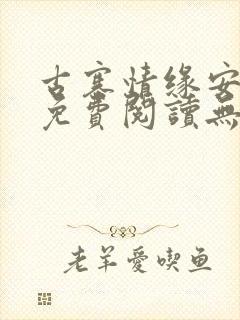 古寨情缘安
免費閱讀無
老羊愛喫鱼